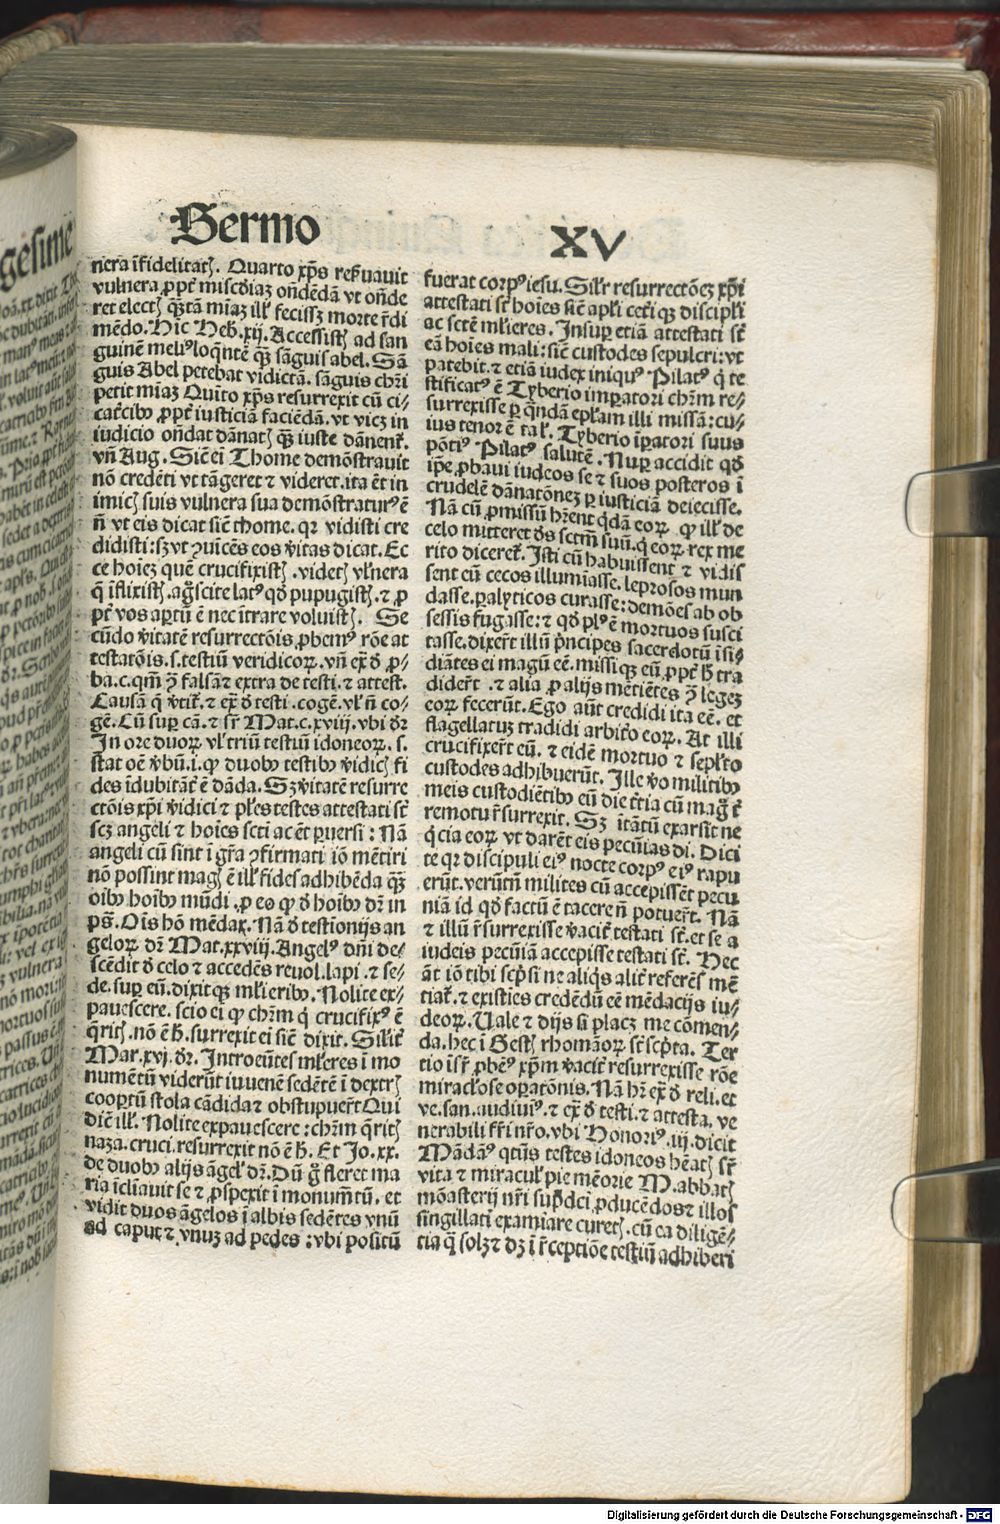 Sermo XV
nera ĩfidelitatꝭ. Quarto xp̃s reẜuauit
vulnera ꝓpt̃ mĩscd̃iaʒ on̄dẽdã vt on̄de
ret electꝭ q̃ʒta m̃iaʒ ill̓ fecissʒ morte r̃di
mẽdo. Hic Heb̓. xij. Accessistꝭ ad san
guinẽ meliꝰ loq̃ntẽ q̃ʒ sãguis abel. Sã
guis Abel petebat vidictã. sãguis chr̃i
petit m̃iaʒ Quĩto xp̃s resurrexit cũ ci⸗
cat̃cibꝯ ꝓpt̃ iusticiã faciẽdã. vt vicʒ in
iudicio on̄dat dãnatꝭ q̃ʒ iuste dãnent̃.
vñ Aug. Sic̃ ei Thome demõstrauit
nõ credẽti vt tãgeret ⁊ videret. ita ẽt in
imicꝭ suis vulnera sua demõstraturꝰ ẽ
ñ vt eis dicat sic̃ thome. qꝛ vidisti cre
didisti: sʒ vt ꝯuĩcẽs eos v̓itas dicat. Ec
ce hoieʒ quẽ crucifixistꝭ. videtꝭ vl̓nera
q̃ ĩflixistꝭ. ag̃scite latꝰ qd̓ pupugistꝭ. ⁊ ꝓ
pt̃ vos aꝑtũ ẽ nec ĩtrare voluistꝭ. Se
cũdo v̓itatẽ resurrectõis ꝓbemꝰ rõe at
testatõis. s. testiũ veridicoꝝ. vñ ex̃ d̓ ꝓ⸗
ba. c. qm̃ ꝯ̃ falsã ⁊ extra de testi. ⁊ attest.
Causã q̃ v̓tit̃. ⁊ ex̃ d̓ testi. cogẽ. vl̓ ñ co⸗
gẽ. Cũ suꝑ cã. ⁊ sr̃ Mat. c. xviij. vbi d̓ꝛ
In ore duoꝝ vl̓ triũ testiũ idoneoꝝ. s.
stat oẽ v̓bũ. i. ꝙ duobꝯ testibꝯ v̓idicꝭ fi
des ĩdubitãt̃ ẽ dãda. Sʒ v̓itatẽ resurre
ctõis xp̃i v̓idici ⁊ pl̓es testes attestati st̃
scʒ angeli ⁊ hoĩes sct̃i ac ẽt ꝑuersi: Nã
angeli cũ sint ĩ gr̃a ꝯfirmati iõ mẽtiri
nõ possint magꝭ ẽ ill̓ fides adhibẽda q̃ʒ
oĩbꝯ hoĩbꝯ mũdi. ꝓ eo ꝙ d̓ hoĩbꝯ d̓ꝛ in
ps̃. Oĩs hõ mẽdax. Nã d̓ testĩonijs an
geloꝝ d̓ꝛ Mat. xxviij. Angelꝰ dñi de⸗
scẽdit d̓ celo ⁊ accedẽs reuol. lapi. ⁊ se⸗
de. suꝑ eũ. dixitqʒ ml̓ieribꝯ. Nolite ex⸗
pauescere. scio ei ꝙ chr̃m q̓ crucifixꝰ ẽ
q̃ritꝭ. nõ ẽ h̓. surrexit ei sic̃ dixit. Sil̓it̃
Mar. xvj. d̓ꝛ. Introeũtes ml̓ieres ĩ mo
numẽtũ viderũt iuuenẽ sedẽtẽ ĩ dextrꝭ
cooꝑtũ stola cãdida ⁊ obstupuer̃t Qui
dic̃ ill̓. Nolite expauescere: chr̃m q̃ritꝭ
naza. cruci. resurrexit nõ ẽ h̓. Et Jo. xx.
de duobꝯ alijs ãgel̓ d̓ꝛ. Dũ g̃ fleret ma
ria ĩclĩauit se ⁊ ꝓspexit ĩ monumẽtũ. et
vidit duos ãgelos ĩ albis sedẽtes vnũ
ad caput ⁊ vnuʒ ad pedes: vbi positũ
fuerat corpꝰ iesu. Sil̓r resurrectõeʒ xp̃i
attestati st̃ hoĩes sic̃ apl̓i cet̃iqʒ discipl̓i
ac sct̃e ml̓ieres. Insuꝑ etiã attestati st̃
eã hoĩes mali: sic̃ custodes sepulcri: vt
patebit. ⁊ etiã iudex iniquꝰ Pilatꝰ q̓ te
stificatꝰ ẽ Tyberio imꝑatori chr̃m re⸗
surrexisse ꝑ q̃ndã epl̓am illi missã: cu⸗
ius tenor ẽ tal̓. Tyberio ĩꝑatori suus
põtiꝰ Pilatꝰ salutẽ. Nuꝑ accidit qd̓
ip̃e ꝓbaui iudeos se ⁊ suos posteros ĩ
crudelẽ dãnatõneʒ ꝑ iusticiã deiecisse.
Nã cũ ꝓmissũ hr̃ent q̓dã eoꝝ ꝙ ill̓ de
celo mitteret d̓s sct̃m suũ. q̓ eoꝝ rex me
rito diceret̃. Isti cũ habuissent ⁊ vidis
sent eũ cecos illumĩasse. leprosos mun
dasse. ꝑalyticos curasse: demões ab ob
sessis fugasse: ⁊ qd̓ plꝰ ẽ mortuos susci
tasse. dixer̃t illũ p̃ncipes sacerdotũ ĩsi⸗
diãtes ei magũ eẽ. missiqʒ eũ ꝓpt̃ h̓ tra
dider̃t. ⁊ alia ꝓ alijs mẽtiẽtes ꝯ̃ legeʒ
eoꝝ fecerũt. Ego aũt credidi ita eẽ. et
flagellatuʒ tradidi arbit̓o eoꝝ. At illi
crucifixer̃t eũ. ⁊ eidẽ mortuo ⁊ sepl̓to
custodes adhibuerũt. Ille v̓o militibꝯ
meis custodiẽtibꝯ eũ die t̃tia cũ mag̃ t̃
remotu r̃surrexit. Sʒ ĩtãtũ exarsit ne
q̓cia eoꝝ vt darẽt eis pecũias di. Dici
te qꝛ discipuli eiꝰ nocte corpꝰ eiꝰ rapu
erũt. verũtñ milites cũ accepissẽt pecu
niã id qd̓ factũ ẽ tacere ñ potuer̃t. Nã
⁊ illũ r̃surrexisse v̓acit̃ testati st̃. et se a
iudeis pecũiã accepisse testati st̃. Hec
ãt iõ tibi scp̓si ne aliq̃s alit̃ referẽs mẽ
tiat̃. ⁊ existĩes credẽdũ eẽ mẽdacijs iu⸗
deoꝝ. Uale ⁊ dijs si placʒ me cõmen⸗
da. hec ĩ Gestꝭ rhomãoꝝ st̃ scp̓ta. Ter
tio ĩsr̃ ꝓbeꝰ xp̃m v̓acit̃ resurrexisse rõe
miracl̓ose oꝑatõnis. Nã hr̃ ex̃ d̓ reli. et
ve. san. audiuiꝰ. ⁊ ex̃ d̓ testi. ⁊ attesta. ve
nerabili fr̃i nr̃o. vbi Honoriꝰ. iij. dicit
Mãdãꝰ qt̓us testes idoneos hẽatꝭ sr̃
vita ⁊ miracul̓ pie mẽorie M. abbatꝭ
mõasterij nr̃i sup̃dci ꝓducẽdos ⁊ illos
singillatĩ examĩare curetꝭ. cũ ea diligẽ⸗
tia q̃ solʒ ⁊ dʒ ĩ r̃ceptiõe testiũ adhiberi
Digitalisierung gefördert durch die Deutsche Forschungsgemeinschaft - DFG